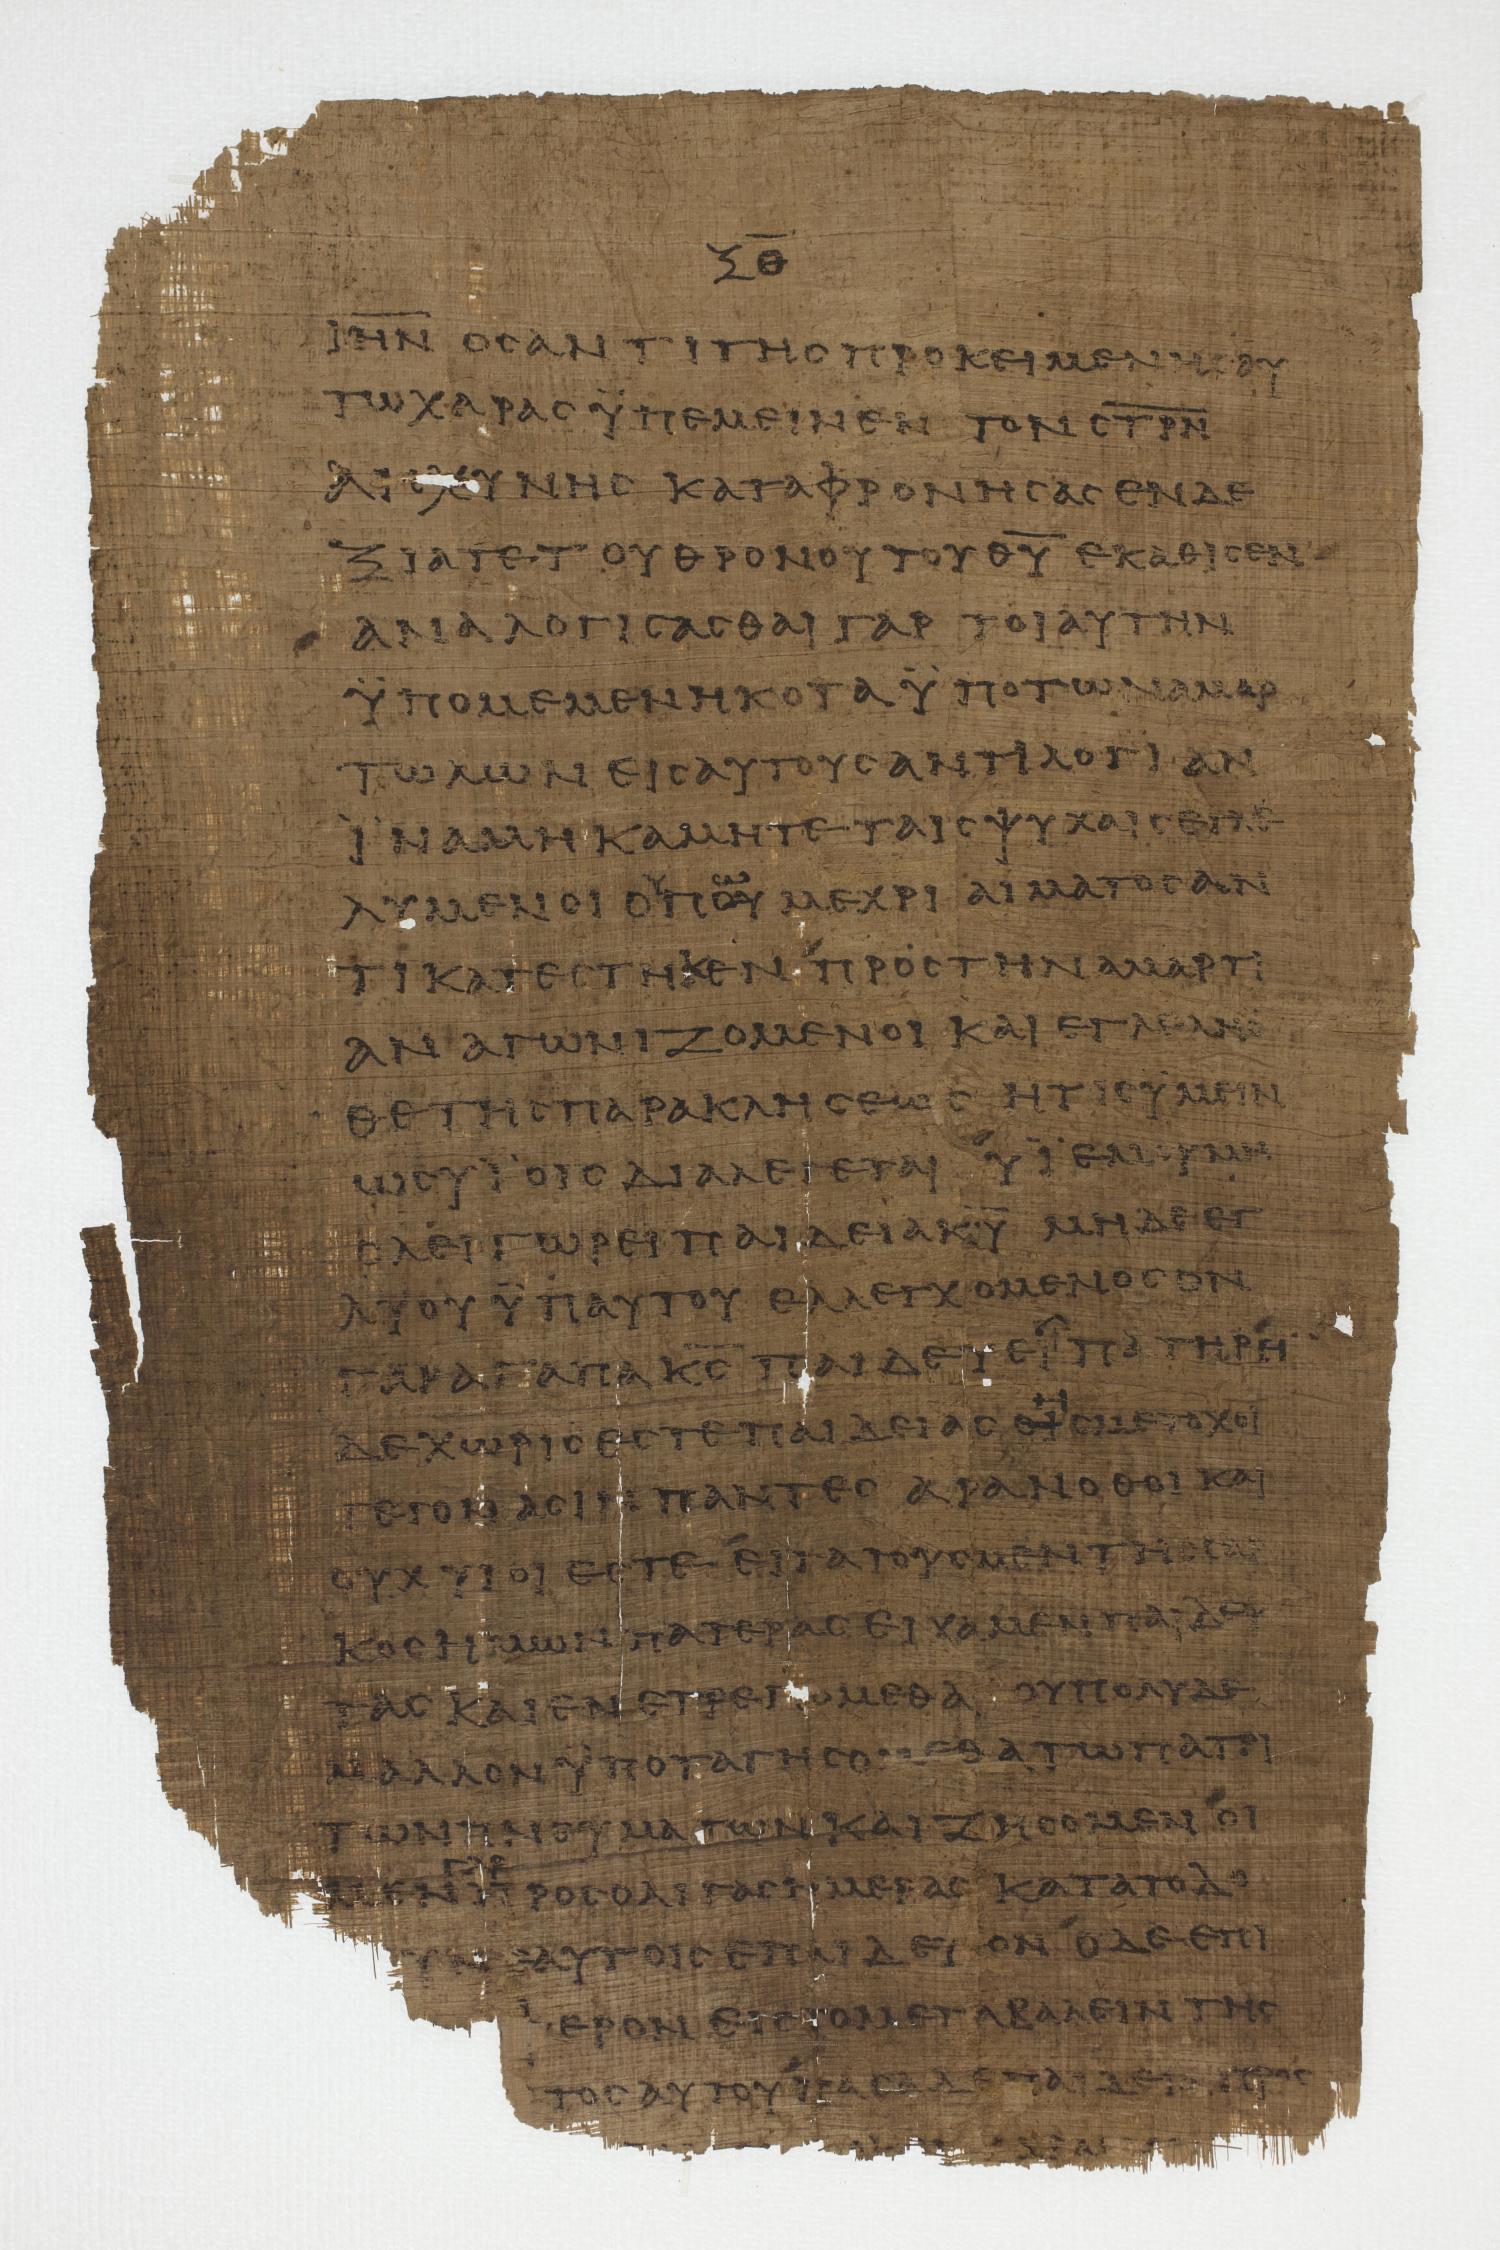 ξθ
ιην ος αντι της προκειμενης αυ
τω χαρας ϋπεμεινεν τον στρν
αισχυνης καταφρονησας εν δε
ξια τε του θρονου του θυ εκαθισεν
αναλογισασθαι γαρ τοιαυτην
ϋπομεμενηκοτα ϋπο των αμαρ
τωλων εις αυτους αντιλογιαν
ϊνα μη καμητε ταις ψυχαις
λυμενοι ουπω μεχρι αιματος αν
τικατεστηκεν προς την αμαρτι
αν αγωνιζομενοι και εγλελησ
θε της παρακλησεως ητις ϋμειν
ως υϊοις διαλεγεται ϋϊε μου μη
ολειγωρει παιδεια κυ μηδε εγ
λυου ϋπ αυτου ελλεγχομενος ον
γαρ αγαπα κς παιδευει
δε χωρις εστε παιδειας ης μετοχοι
γεγονασιν παντες αρα νοθοι και
ουχ υιοι εστε ειτα τους μεν της σαρ
κος ημων πατερας ειχαμεν παιδευ
τας και ενετρεπομεθα ου πολυ δε
μαλλον ϋποταγησομεθα τω πατρι
των πνουματων και ζησομεν οι
μεν γαρ προς ολιγας ημερας κατα το δο
αυτοις επαιδευον ο δε επι
φερον εις το μεταβαλειν της
τος αυτου πασα δε παιδεια προς